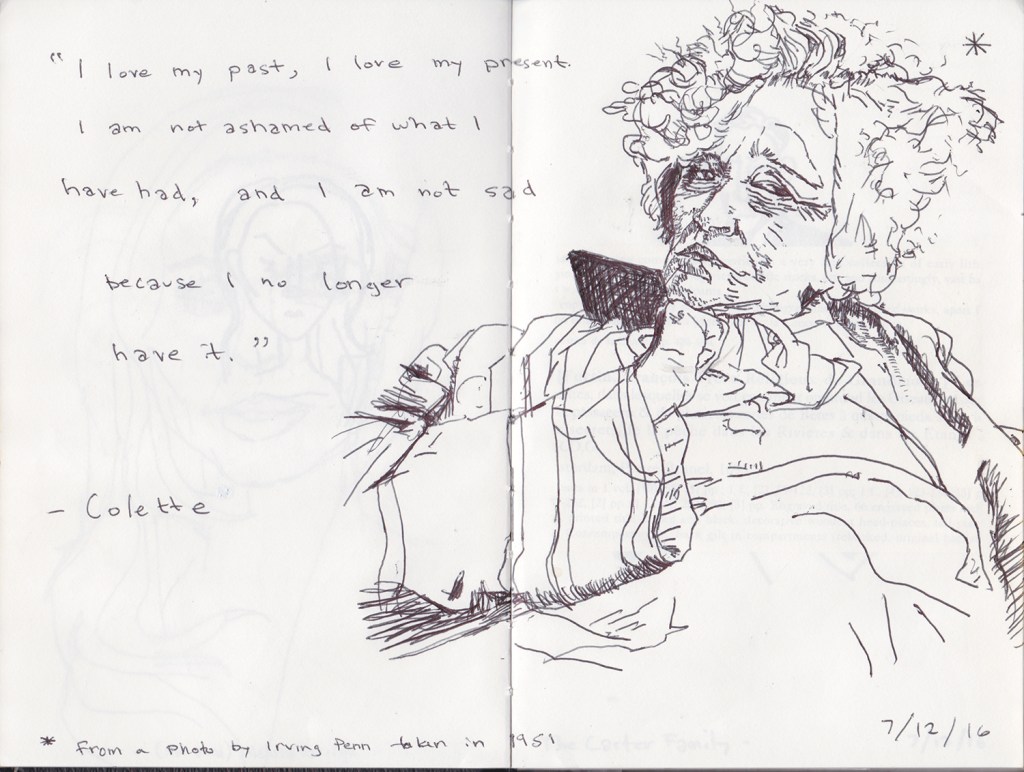 "I love my past, I love my present.
I am not ashamed of what I
have had, and I am not sad
because I no longer
have it."
- Colette
*
* From a photo by Irving Penn taken in 1951
7/12/16
The Carter Family -